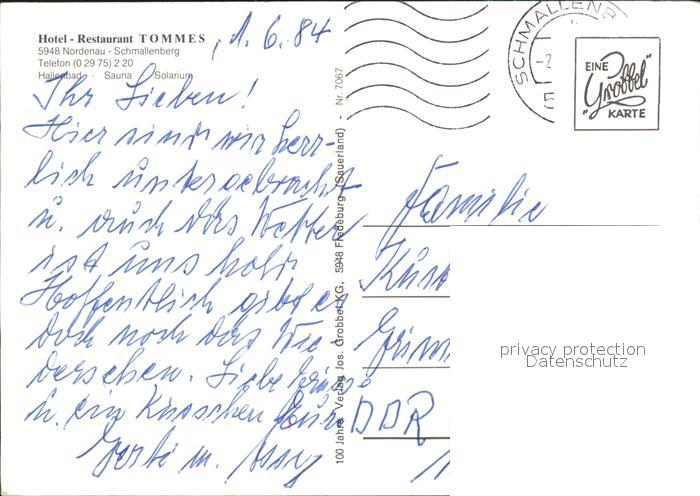 Hotel - Restaurant TOMMES
5948 Nordenau - Schmallenberg
Telefon (0 29 75) 2 20
Hallenbad · Sauna · Solarium
, 1. 6. 84
Ihr Lieben!
Hier sind wir herr-
lich untergebracht
u. auch das Wetter
ist uns hold.
Hoffentlich gibt es
doch noch das Wie-
dersehen. Liebe Grüsse
u. ein Küsschen Eure
Gerti u.
100 Jahre Verlag Jos. Grobbel KG, 5948 Fredeburg (Sauerland) - Nr. 7067
SCHMALLENB
-2
EINE
"Grobbel"
KARTE
Familie
DDR
privacy protection
Datenschutz